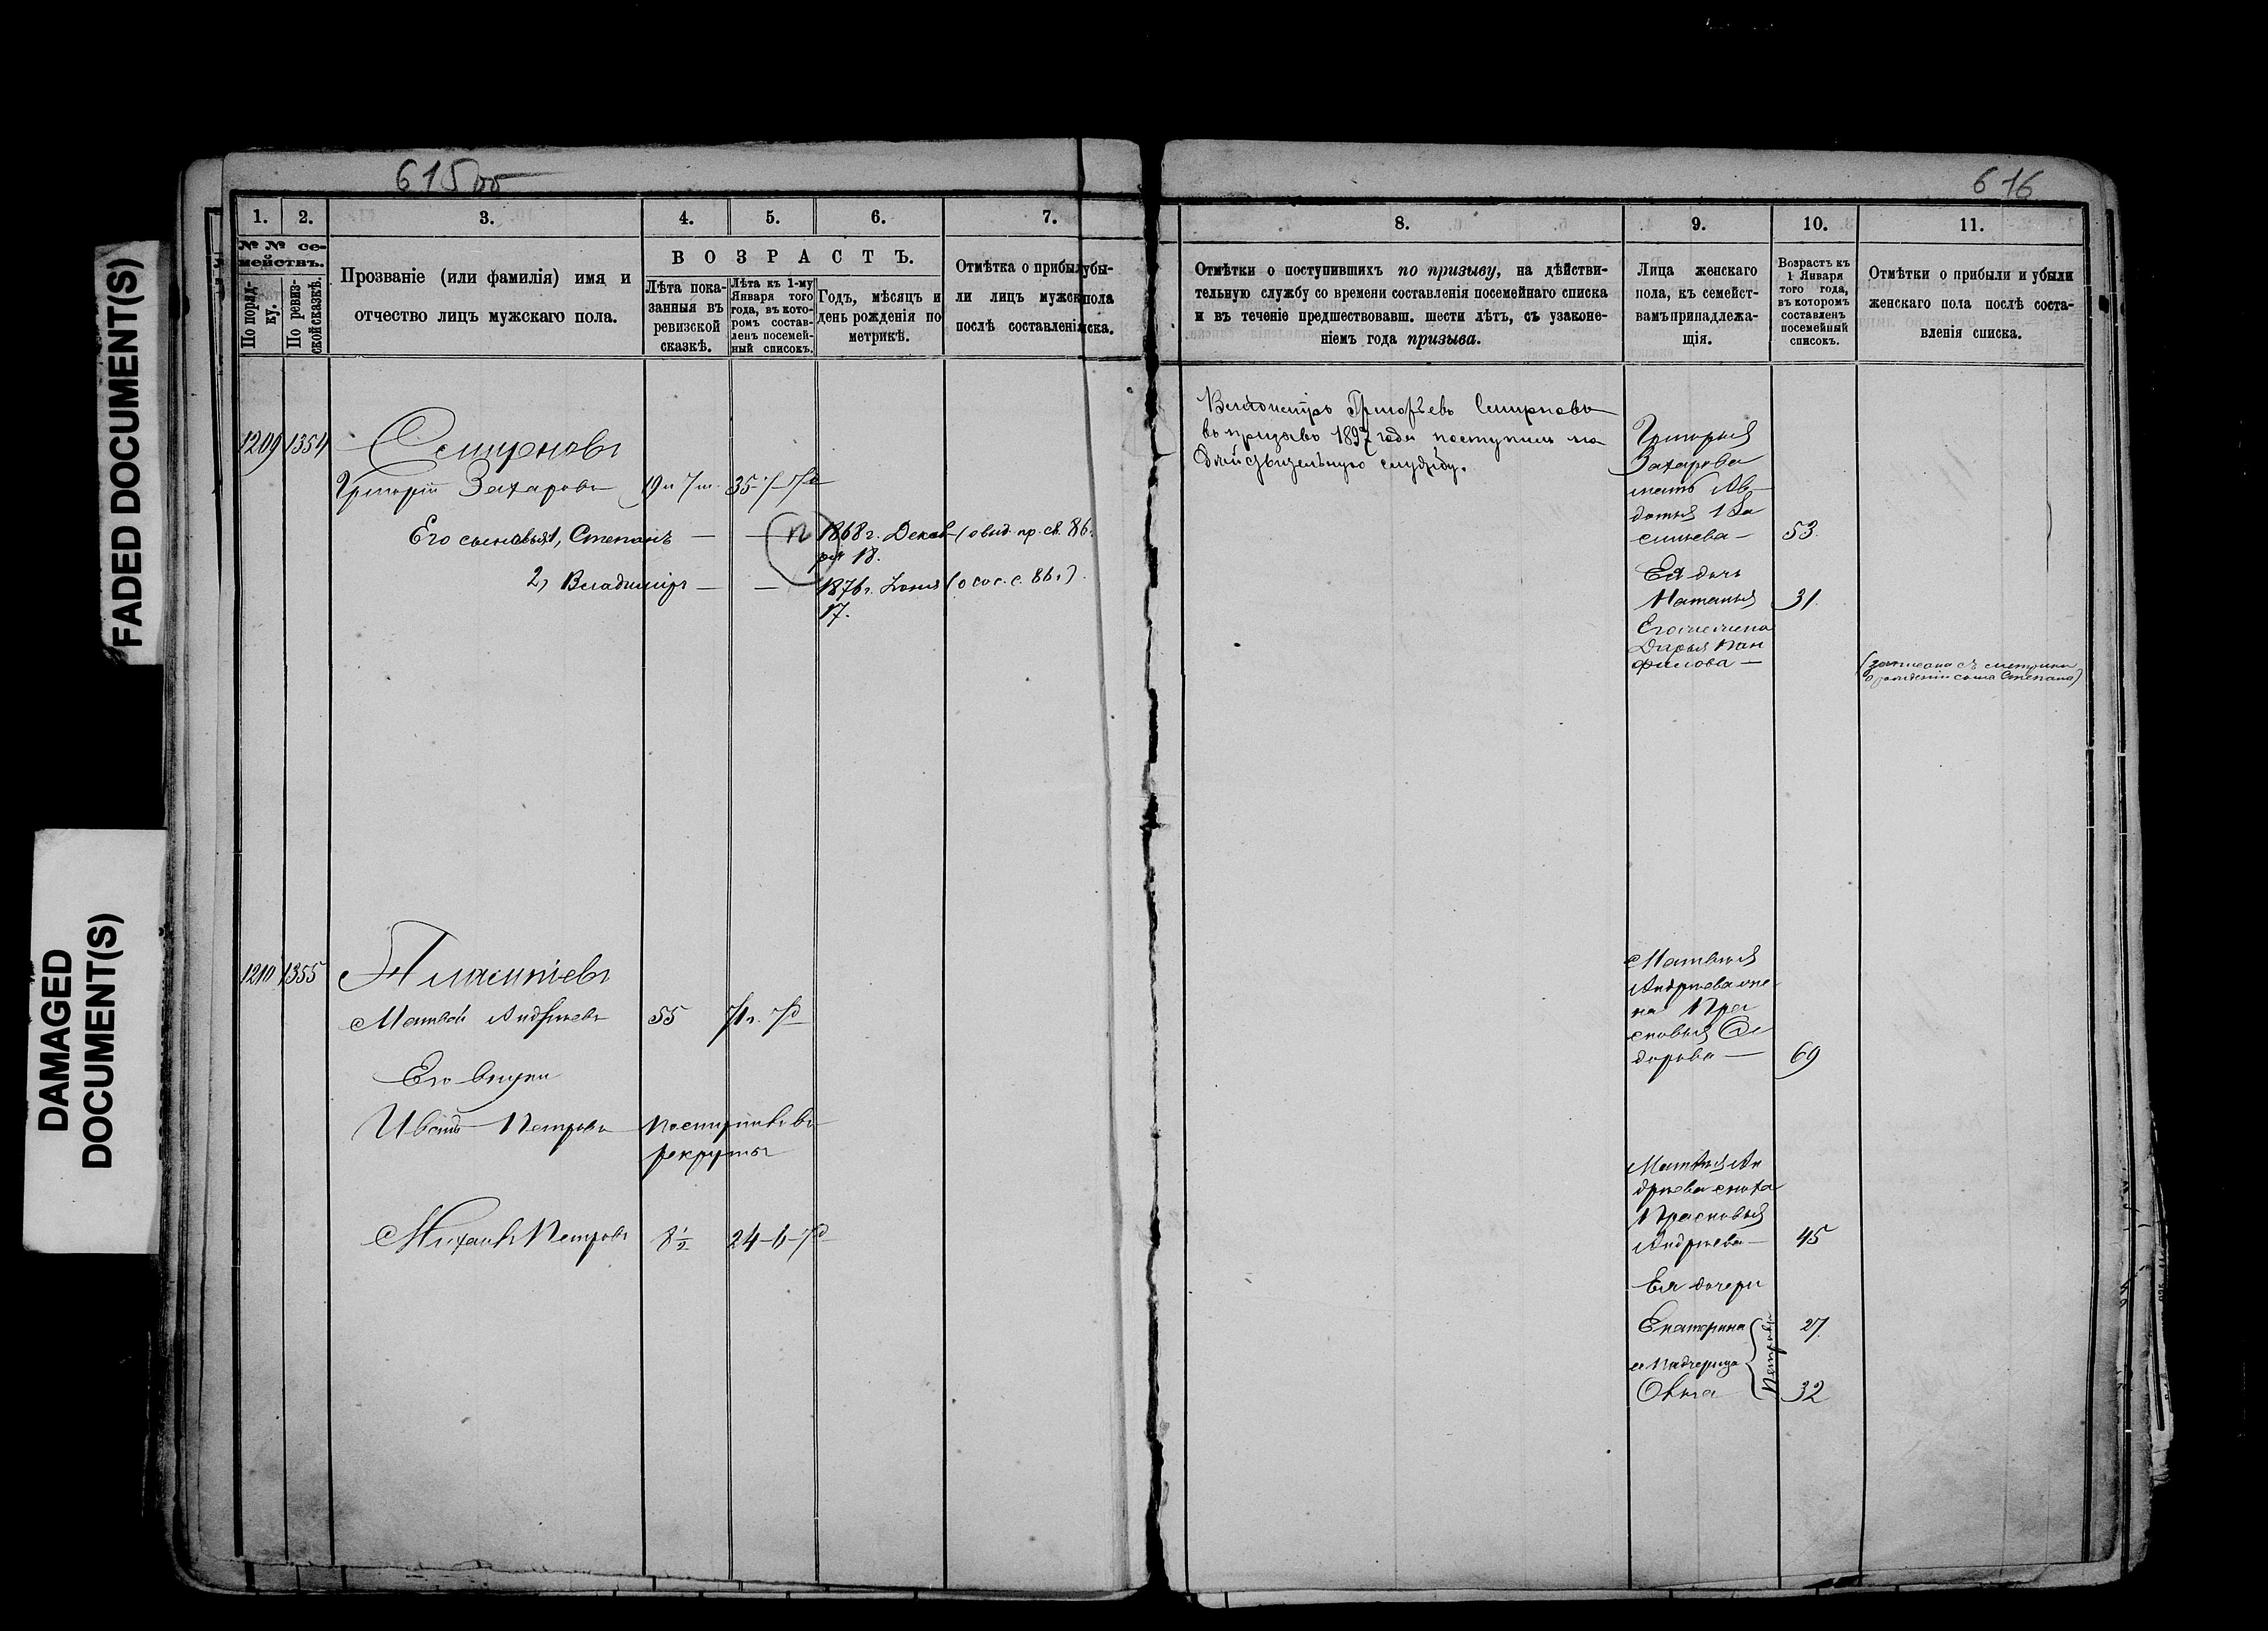 FADED DOCUMENT(S)
DAMAGED
DOCUMENT(S)
615 об
1. 2. 3. 4. 5. 6. 7.
№ № се-
мействъ.
По поряд-
ку.
По ревиз-
ской сказкѣ.
Прозваніе (или фамилія) имя и
отчество лицъ мужскаго пола.
ВОЗРАСТЪ.
Лѣта пока-
занныя въ
ревизской
сказкѣ.
Лѣта къ 1-му
Января того
года, въ кото-
ромъ состав-
ленъ посемей-
ный списокъ.
Годъ, мѣсяцъ и
день рожденія по
метрикѣ.
Отмѣтка о прибы убы-
ли лицъ мужск пола
послѣ составлені ска.
1209 1354 Смирновъ
Григорій Захаровъ 19 и 7 м. 35
Его сыновья 1, Степанъ — — 1868 г. Декаб-
ря 18.
2, Владиміръ — — 1876 г. Іюля
17.
1210 1355
Матвѣй Андреевъ 55 71
Его внуки
Иванъ Петровъ Поступилъ въ
рекруты
Михаилъ Петровъ 8½ 24-6-
616
8. 9. 10. 11.
Отмѣтки о поступившихъ по призыву, на дѣйстви-
тельную службу со времени составленія посемейнаго списка
и въ теченіе предшествовавш. шести лѣтъ, съ узаконе-
ніемъ года призыва.
Лица женскаго
пола, къ семейст-
вамъ принадлежа-
щія.
Возрастъ къ
1 Января
того года,
въ которомъ
составленъ
посемейный
списокъ.
Отмѣтки о прибыли и убыли
женскаго пола послѣ соста-
вленія списка.
Владиміръ Григорьевъ Смирновъ
въ призывъ 1897 года поступилъ на
дѣйствительную службу.
Григорья
Захарова
мать Ав-
дотья Ва
сильева — 53.
Ея дочь
Наталья 31.
Его жена
Дарья Пан
филова —
(записана съ метрики
о рожденіи сына Степана)
Матвѣя
Андреева же
на Пра
сковья Си
дорова — 69
Матвѣя Ан
дреева сноха
Прасковья
Андреева — 45
Ея дочери
Екатерина 27.
ея падчерица
Ольга 32
Петровы